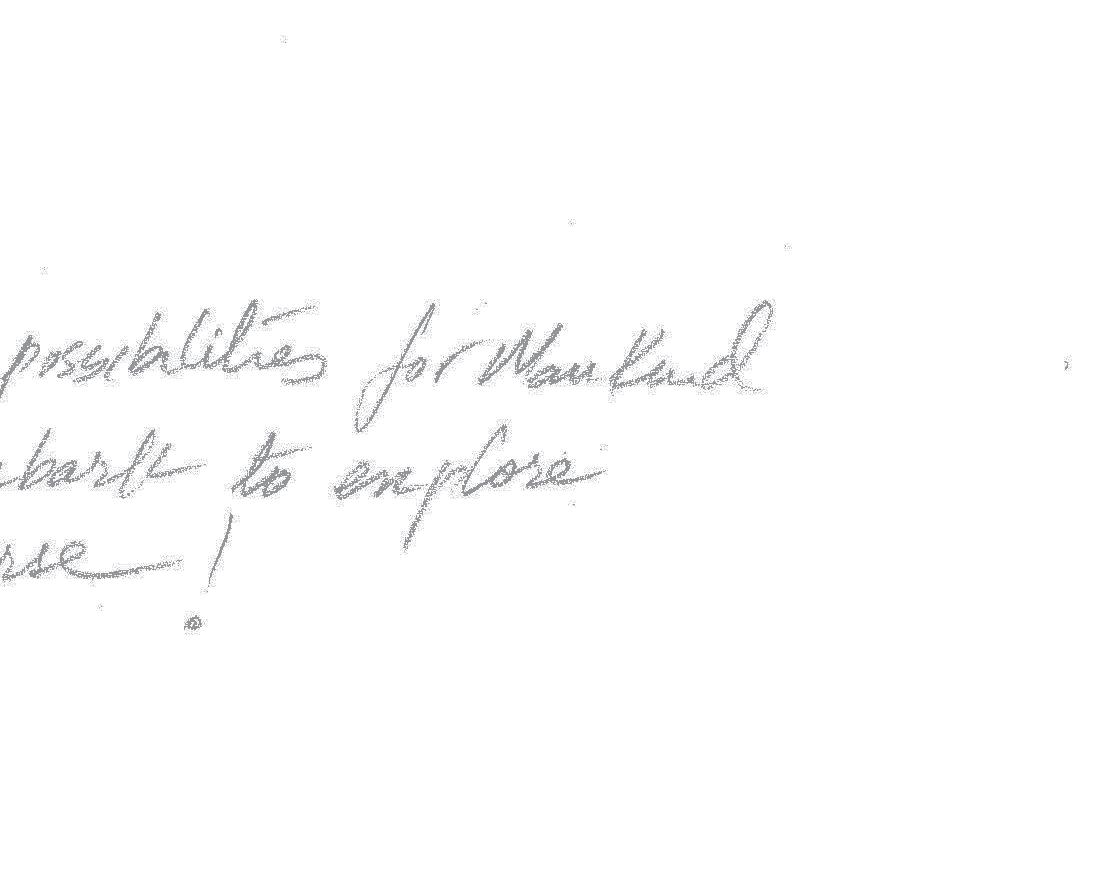 possibilities for Mankind
bark to explore
rse !